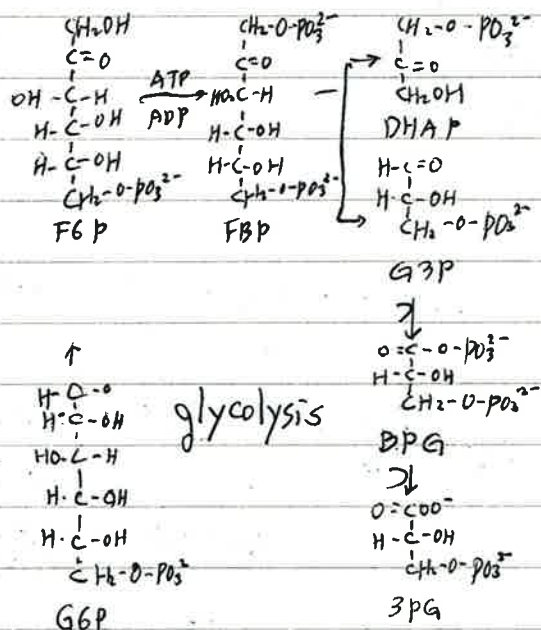 CH2OH
C=O
OH-C-H
H-C-OH
H-C-OH
CH2-O-PO3 2-
F6P
ATP
ADP
CH2-O-PO3 2-
C=O
HO2C-H
H-C-OH
H-C-OH
CH2-O-PO3 2-
FBP
CH2-O-PO3 2-
C=O
CH2OH
DHAP
H-C=O
H-C-OH
CH2-O-PO3 2-
G3P
O=C-O-PO3 2-
H-C-OH
CH2-O-PO3 2-
BPG
O=COO-
H-C-OH
CH2-O-PO3 2-
3PG
glycolysis
H-C-OH
HO-C-H
H-C-OH
H-C-OH
CH2-O-PO3 2
G6P